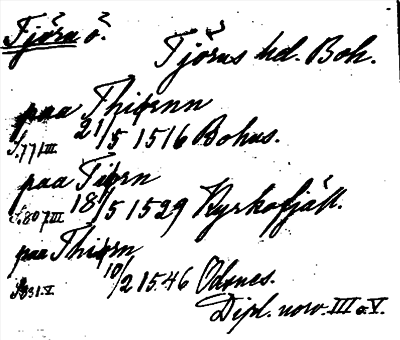 Tjörn ö. Tjörns hd. Boh.
paa Thiørnn
21/5 1516 Bohus.
S. 771 III
paa Tiørn
18/5 1529 Kyrkofjäll.
S. 807 III
paa Thiørn
10/2 1546
S 831. V.
Dipl. norv. III o. V.